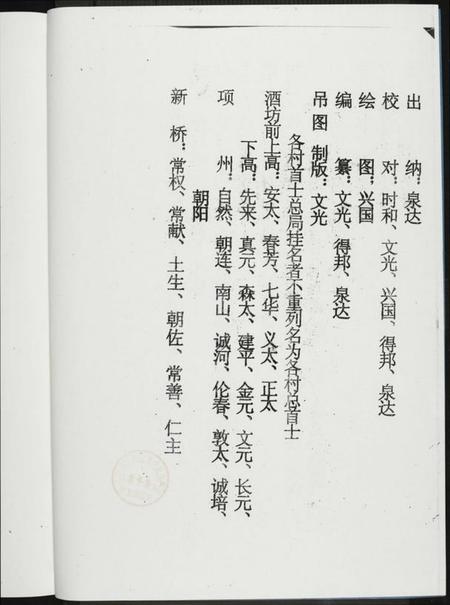 出　纳：泉达
校　对：时和、文光、兴国、得邦、泉达
绘　图：兴国
编　纂：文光、得邦、泉达
吊图制版：文光
各村首士总局挂名者不重列名为各村总首士
酒坊前上高：安太、春芳、七华、义太、正太
下高：先来、真元、森太、建平、金元、文元、长元、
项　州：自然、朝连、南山、诚河、伦春、敦太、诚培、
朝阳
新　桥：常权、常献、土生、朝佐、常善、仁主